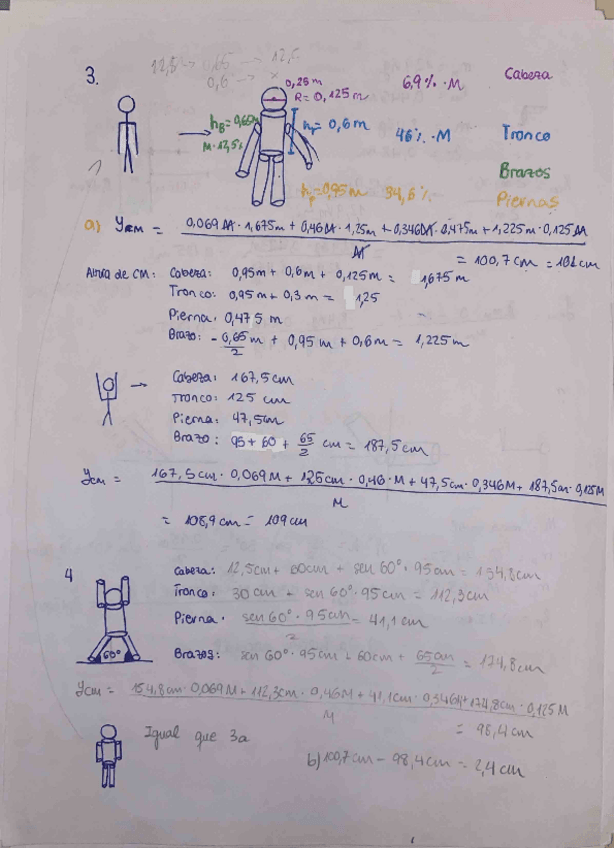 12,5 → 0,65 → 12,5
0,6 → x
3.
0,25m
R = 0,125m
6,9% · M
Cabeza
h_B = 0,65m
M · 12,5%
h_T = 0,6m
46% · M
Tronco
Brazos
h_p = 0,95m
34,6%
Piernas
a) Y_CM = 0,069M · 1,675m + 0,46M · 1,25m + 0,346M · 0,475m + 1,225m · 0,125M
M
= 100,7cm = 101cm
Altura de CM: Cabeza: 0,95m + 0,6m + 0,125m = 1,675m
Tronco: 0,95m + 0,3m = 1,25
Pierna: 0,475m
Brazo: - 0,65/2 m + 0,95m + 0,6m = 1,225m
Cabeza: 167,5cm
Tronco: 125cm
Pierna: 47,5cm
Brazo: 95 + 60 + 65/2 cm = 187,5cm
Y_CM = 167,5cm · 0,069M + 125cm · 0,46 · M + 47,5cm · 0,346M + 187,5cm · 0,125M
M
= 108,9cm = 109cm
4
Cabeza: 12,5cm + 60cm + sen60° · 95cm = 154,8cm
Tronco: 30cm + sen60° · 95cm = 112,3cm
Pierna: sen60° · 95cm / 2 = 41,1cm
60°
Brazos: sen60° · 95cm + 60cm + 65cm/2 = 174,8cm
Y_CM = 154,8cm · 0,069M + 112,3cm · 0,46M + 41,1cm · 0,346M + 174,8cm · 0,125M
M
= 98,4cm
Igual que 3a
b) 100,7cm - 98,4cm = 2,4cm